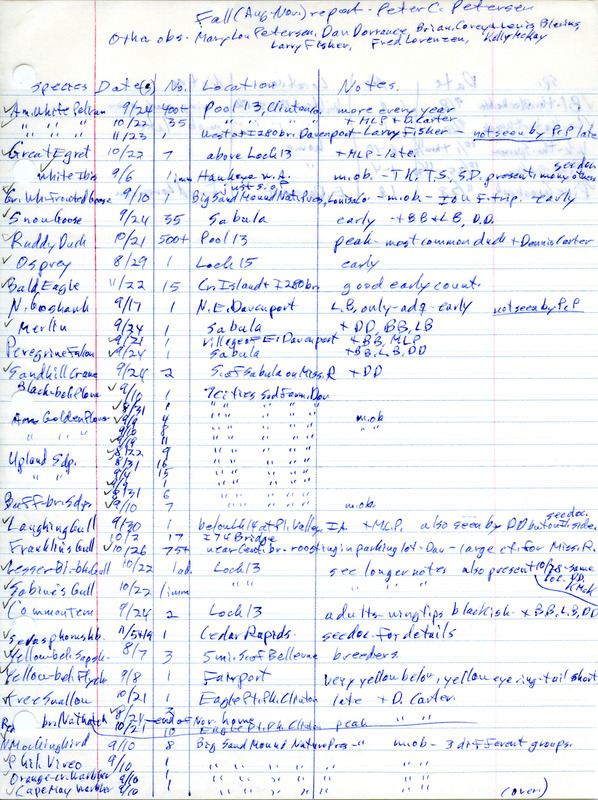 Fall (Aug-Nov.) report - Peter C. Petersen
Other obs - Mary Lou Petersen, Dan Dorrance, Brian, Corey + Louis Blevins,
Larry Fisher, Fred Lorenzen, Kelly McKay
Species Date(s) No. Location Notes.
Am. White Pelican 9/24 400+ Pool 13, Clinton Co. more every year
" " " 10/22 35 " " " + MLP + D. Carter
" " " 11/23 1 West of I280 br. Davenport Larry Fisher - not seen by PCP late
Great Egret 10/22 7 above Lock 13 + MLP - late.
White Ibis 9/6 1 imm Hawkeye W.A. just s. of m.ob. - T.K., T.S., S.D. present, many others see doc.
Gr. Wh. Fronted Goose 9/10 1 Big Sand Mound Nat. Pres, Louisa Co - m.ob. - IOU F. trip. early
Snow Goose 9/24 35 Sabula early - + BB + LB, D.D.
Ruddy Duck 10/21 500+ Pool 13 peak - most common duck + Dennis Carter
Osprey 8/29 1 Lock 15 early
Bald Eagle 11/22 15 Cr. Island + I280 br. good early count.
N. Goshawk 9/17 1 N.E. Davenport L.B. only - adq - early not seen by PCP
Merlin 9/24 1 Sabula + DD, BB, LB
9/21 1 Village of E. Davenport + BB, MLP
Peregrine Falcon 9/24 1 Sabula + BB, LB, DD
Sandhill Crane 9/24 2 S. of Sabula on Miss. R + DD
Black-bel. Plover 9/10 1 7 cities Sod Farm, Dav
8/31 1 " " " "
Am Golden Plover 9/9 4 " " " " m.ob
" " " 9/10 8 " " " " " "
9/19 11 " " " "
Upland Sdp. 8/22 9 " " " "
" " 8/31 16 " " " "
9/4 15 " " " "
9/9 1 " " " "
8/31 6 " " " "
Buff-br. Sdpr 9/10 7 " " " " m.ob.
Laughing Gull 9/30 1 below Lk 14 at Pl. Valley IA + MLP. also seen by DD but on Ill. side. see doc.
10/2 17 I74 Bridge
Franklin's Gull 10/26 75+ near Cent. br. roosting in parking lot - Dav - large ct. for Miss. R.
Lesser Bl-bk Gull 10/22 1 ad. Lock 13 see longer notes also present 10/28 - same loc. DD, K McK
Sabine's Gull 10/22 1 imm " " " "
Common Tern 9/24 2 Lock 13 adults - wing tips blackish - + BB, LB, DD
hb. 11/5+19 1 Cedar Rapids. see doc. for details
Yellow-bel. Sapsk. 8/7 3 5 mi. S. of Bellevue breeders.
Yellow-bel. Flyck 9/8 1 Fairport very yellow below, yellow eye ring - tail short
Tree Swallow 10/21 1 Eagle Pt. Pk. Clinton late + D. Carter.
Red br. Nuthatch 8/24 - end of Nov. 3 home
10/21 10 Eagle Pt. Pk. Clinton peak " "
N. Mockingbird 9/10 8 Big Sand Mound Nature Pres - " m.ob - 3 different groups.
Phil. Vireo 9/10 1 " " " " " "
Orange-cr. Warbler 9/10 1 " " " " " "
Cape May Warbler 9/10 1 " " " " " "
(over)